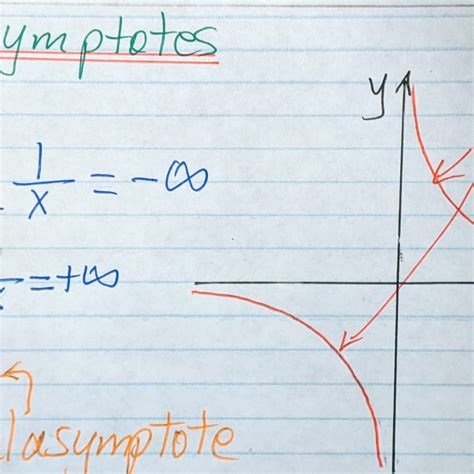 ymptotes
y
1
x = -∞
= +∞
l asymptote